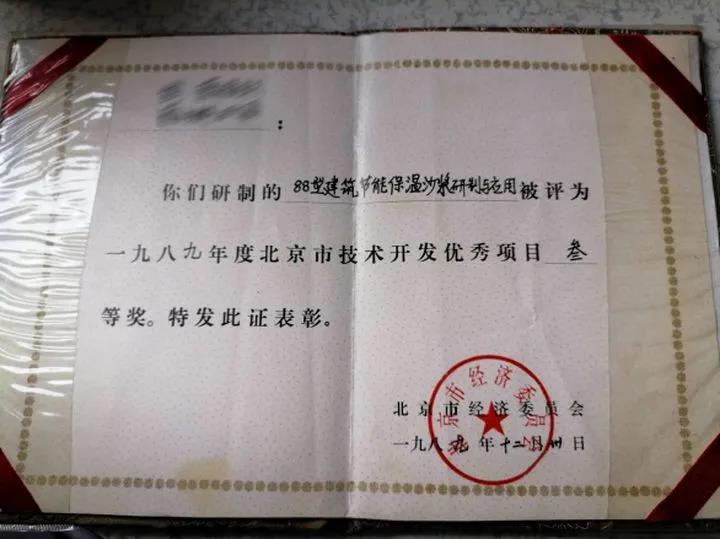 ：
你们研制的 88型建筑节能保温沙浆研制与应用 被评为
一九八九年度北京市技术开发优秀项目 叁
等奖。特发此证表彰。
北京市经济委员会
北京市经济委员会
一九八九年十二月卅日